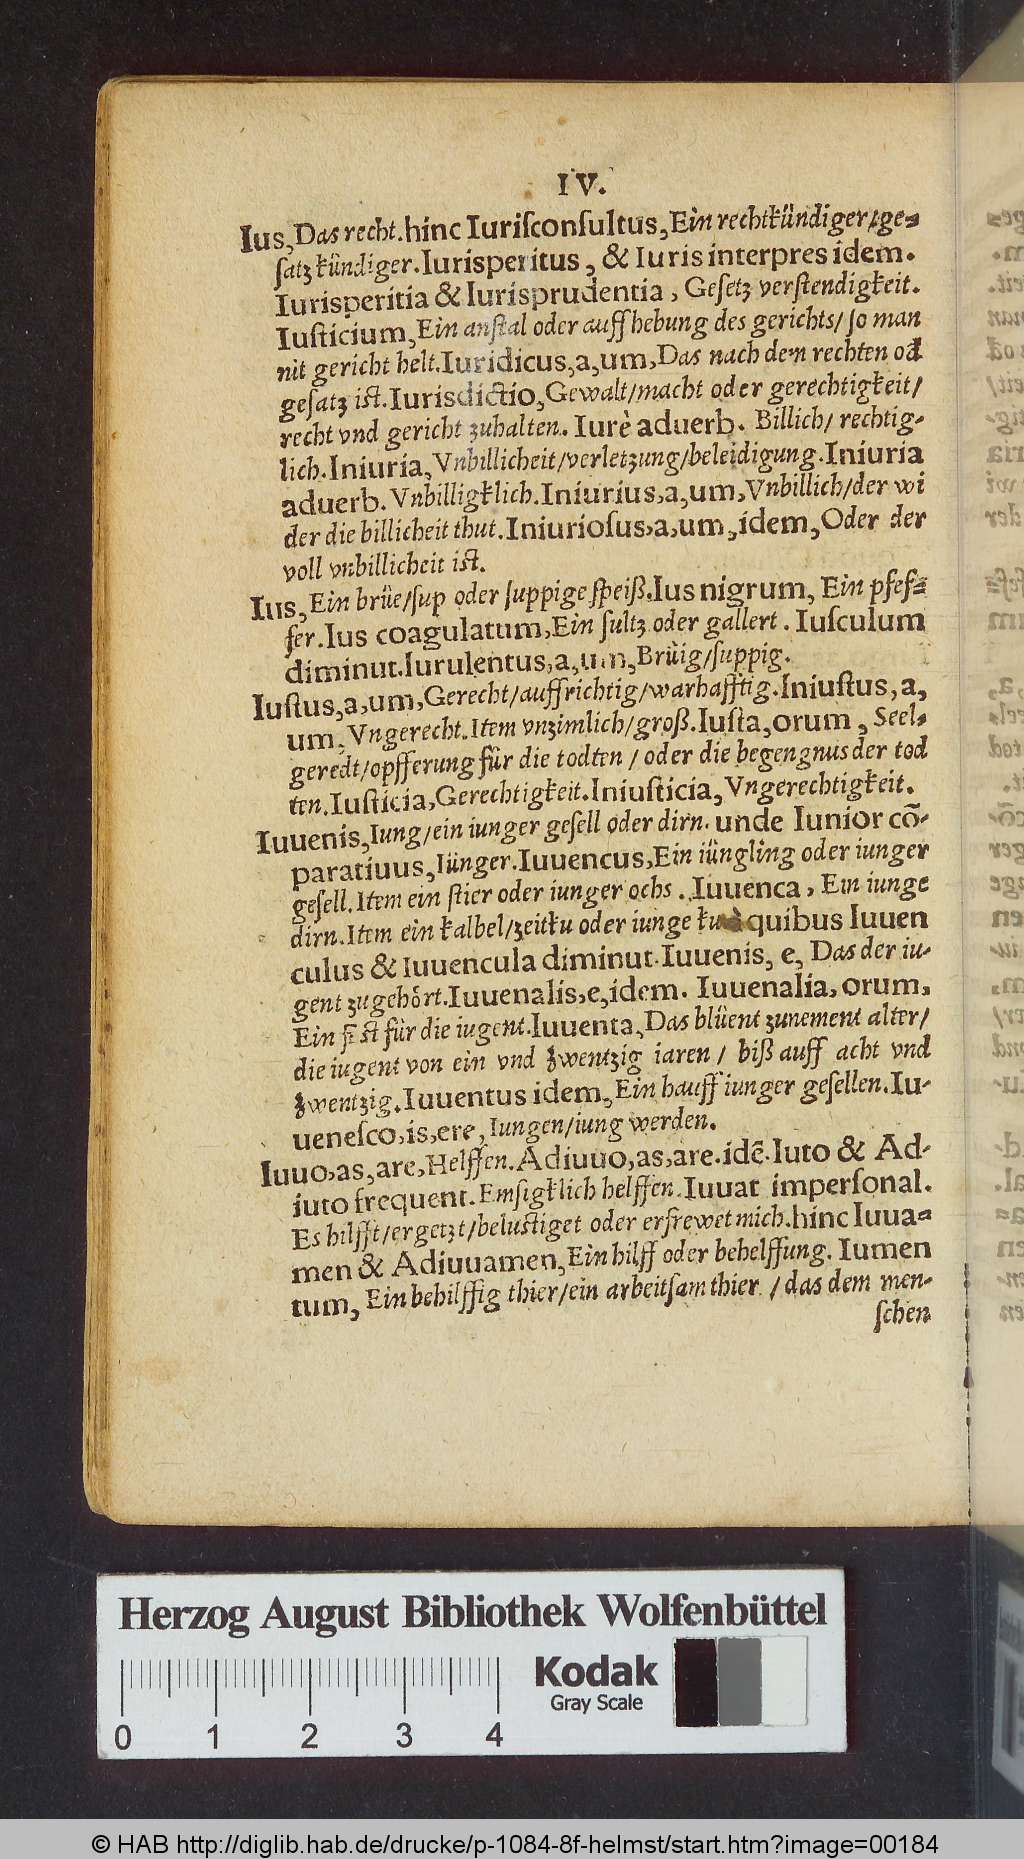 IV.
Ius, Das recht. hinc Iuriſconſultus, Ein rechtkündiger/ge⸗
ſatzkündiger. Iurisperitus, & Iuris interpres idem.
Iurisperitia & Iurisprudentia, Geſetz verſtendigkeit.
Iuſticium, Ein anſtal oder auffhebung des gerichts/ ſo man
nit gericht helt. Iuridicus, a, um, Das nach den rechten od
geſatz iſt. Iurisdictio, Gewalt/macht oder gerechtigkeit/
recht vnd gericht zuhalten. Iurè aduerb. Billich/ rechtig-
lich. Iniuria, Vnbillicheit/verletzung/beleidigung. Iniuria
aduerb. Vnbilligklich. Iniurius, a, um, Vnbillich/der wi
der die billicheit thut. Iniurioſus, a, um, idem, Oder der
voll vnbillicheit iſt.
Ius, Ein brüe/ſup oder ſuppige ſpeiß. Ius nigrum, Ein pfef⸗
fer. Ius coagulatum, Ein ſultz oder gallert. Iuſculum
diminut. Iurulentus, a, um, Brüig/ſuppig.
Iuſtus, a, um, Gerecht/auffrichtig/warhafftig. Iniuſtus, a,
um, Vngerecht. Item vnzimlich/groß. Iuſta, orum, Seel-
geredt/opfferung für die todten / oder die begengnus der tod
ten. Iuſticia, Gerechtigkeit. Iniuſticia, Vngerechtigkeit.
Iuuenis, Iung/ein iunger geſell oder dirn. unde Iunior cō-
paratiuus, Iünger. Iuuencus, Ein iüngling oder iunger
geſell. Item ein ſtier oder iunger ochs. Iuuenca, Ein iunge
dirn. Item ein kalbel/zeitku oder iunge ku à quibus Iuuen
culus & Iuuencula diminut. Iuuenis, e, Das der iu-
gent zugehört. Iuuenalis, e, idem. Iuuenalia, orum,
Ein feſt für die iugent. Iuuenta, Das blüent zunement alter/
die iugent von ein vnd zwentzig iaren / biß auff acht vnd
zwentzig. Iuuentus idem, Ein hauff iunger geſellen. Iu-
ueneſco, is, ere, Iungen/iung werden.
Iuuo, as, are, Helffen. Adiuuo, as, are. idē. Iuto & Ad-
iuto frequent. Emſigklich helffen. Iuuat imperſonal.
Es hilfft/ergetzt/beluſtiget oder erfrewet mich. hinc Iuua⸗
men & Adiuuamen, Ein hilff oder behelffung. Iumen
tum, Ein behilffig thier/ein arbeitſam thier / das dem men-
ſchen
Herzog August Bibliothek Wolfenbüttel
Kodak
Gray Scale
0 1 2 3 4
© HAB http://diglib.hab.de/drucke/p-1084-8f-helmst/start.htm?image=00184